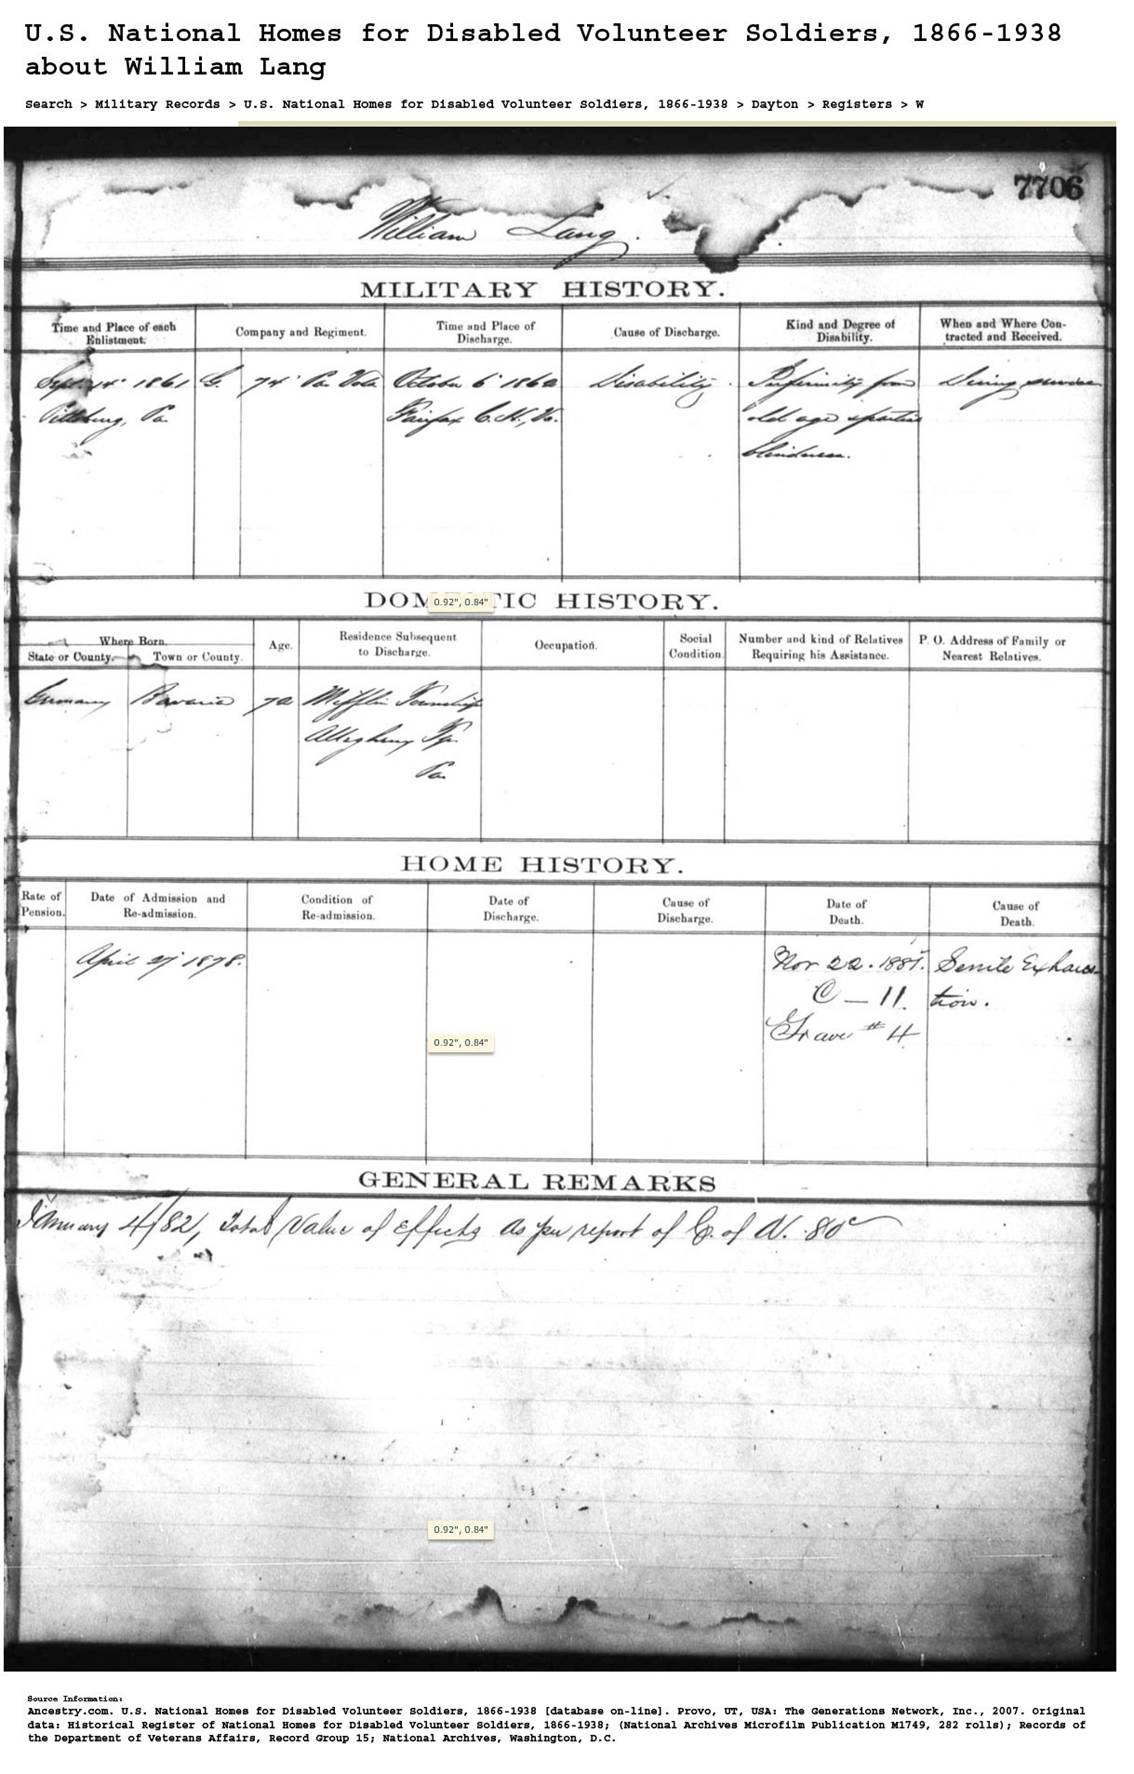 U.S. National Homes for Disabled Volunteer Soldiers, 1866-1938
about William Lang
Search > Military Records > U.S. National Homes for Disabled Volunteer Soldiers, 1866-1938 > Dayton > Registers > W
7706
William Lang.
MILITARY HISTORY.
Time and Place of each Enlistment.
Company and Regiment.
Time and Place of Discharge.
Cause of Discharge.
Kind and Degree of Disability.
When and Where Contracted and Received.
Sept. 14" 1861
Pittsburg, Pa
G. 74" Pa Vols
October 6" 1862
Fairfax C.H., Va.
Disability.
Infirmity from
old age & partial
blindness.
During service
DOM TIC HISTORY.
0.92", 0.84"
Where Born.
State or County.
Town or County.
Age.
Residence Subsequent to Discharge.
Occupation.
Social Condition.
Number and kind of Relatives Requiring his Assistance.
P. O. Address of Family or Nearest Relatives.
Germany
Bavaria
72
Mifflin Township
Allegheny
Pa
HOME HISTORY.
Rate of Pension.
Date of Admission and Re-admission.
Condition of Re-admission.
Date of Discharge.
Cause of Discharge.
Date of Death.
Cause of Death.
April 27" 1878.
Nov 22. 1881.
C - 11.
Grave # 4
Senile Exhaus-
tion.
0.92", 0.84"
GENERAL REMARKS
January 4/82, Total Value of Effects as per report of C. of A. 80c
0.92", 0.84"
Source Information:
Ancestry.com. U.S. National Homes for Disabled Volunteer Soldiers, 1866-1938 [database on-line]. Provo, UT, USA: The Generations Network, Inc., 2007. Original
data: Historical Register of National Homes for Disabled Volunteer Soldiers, 1866-1938; (National Archives Microfilm Publication M1749, 282 rolls); Records of
the Department of Veterans Affairs, Record Group 15; National Archives, Washington, D.C.